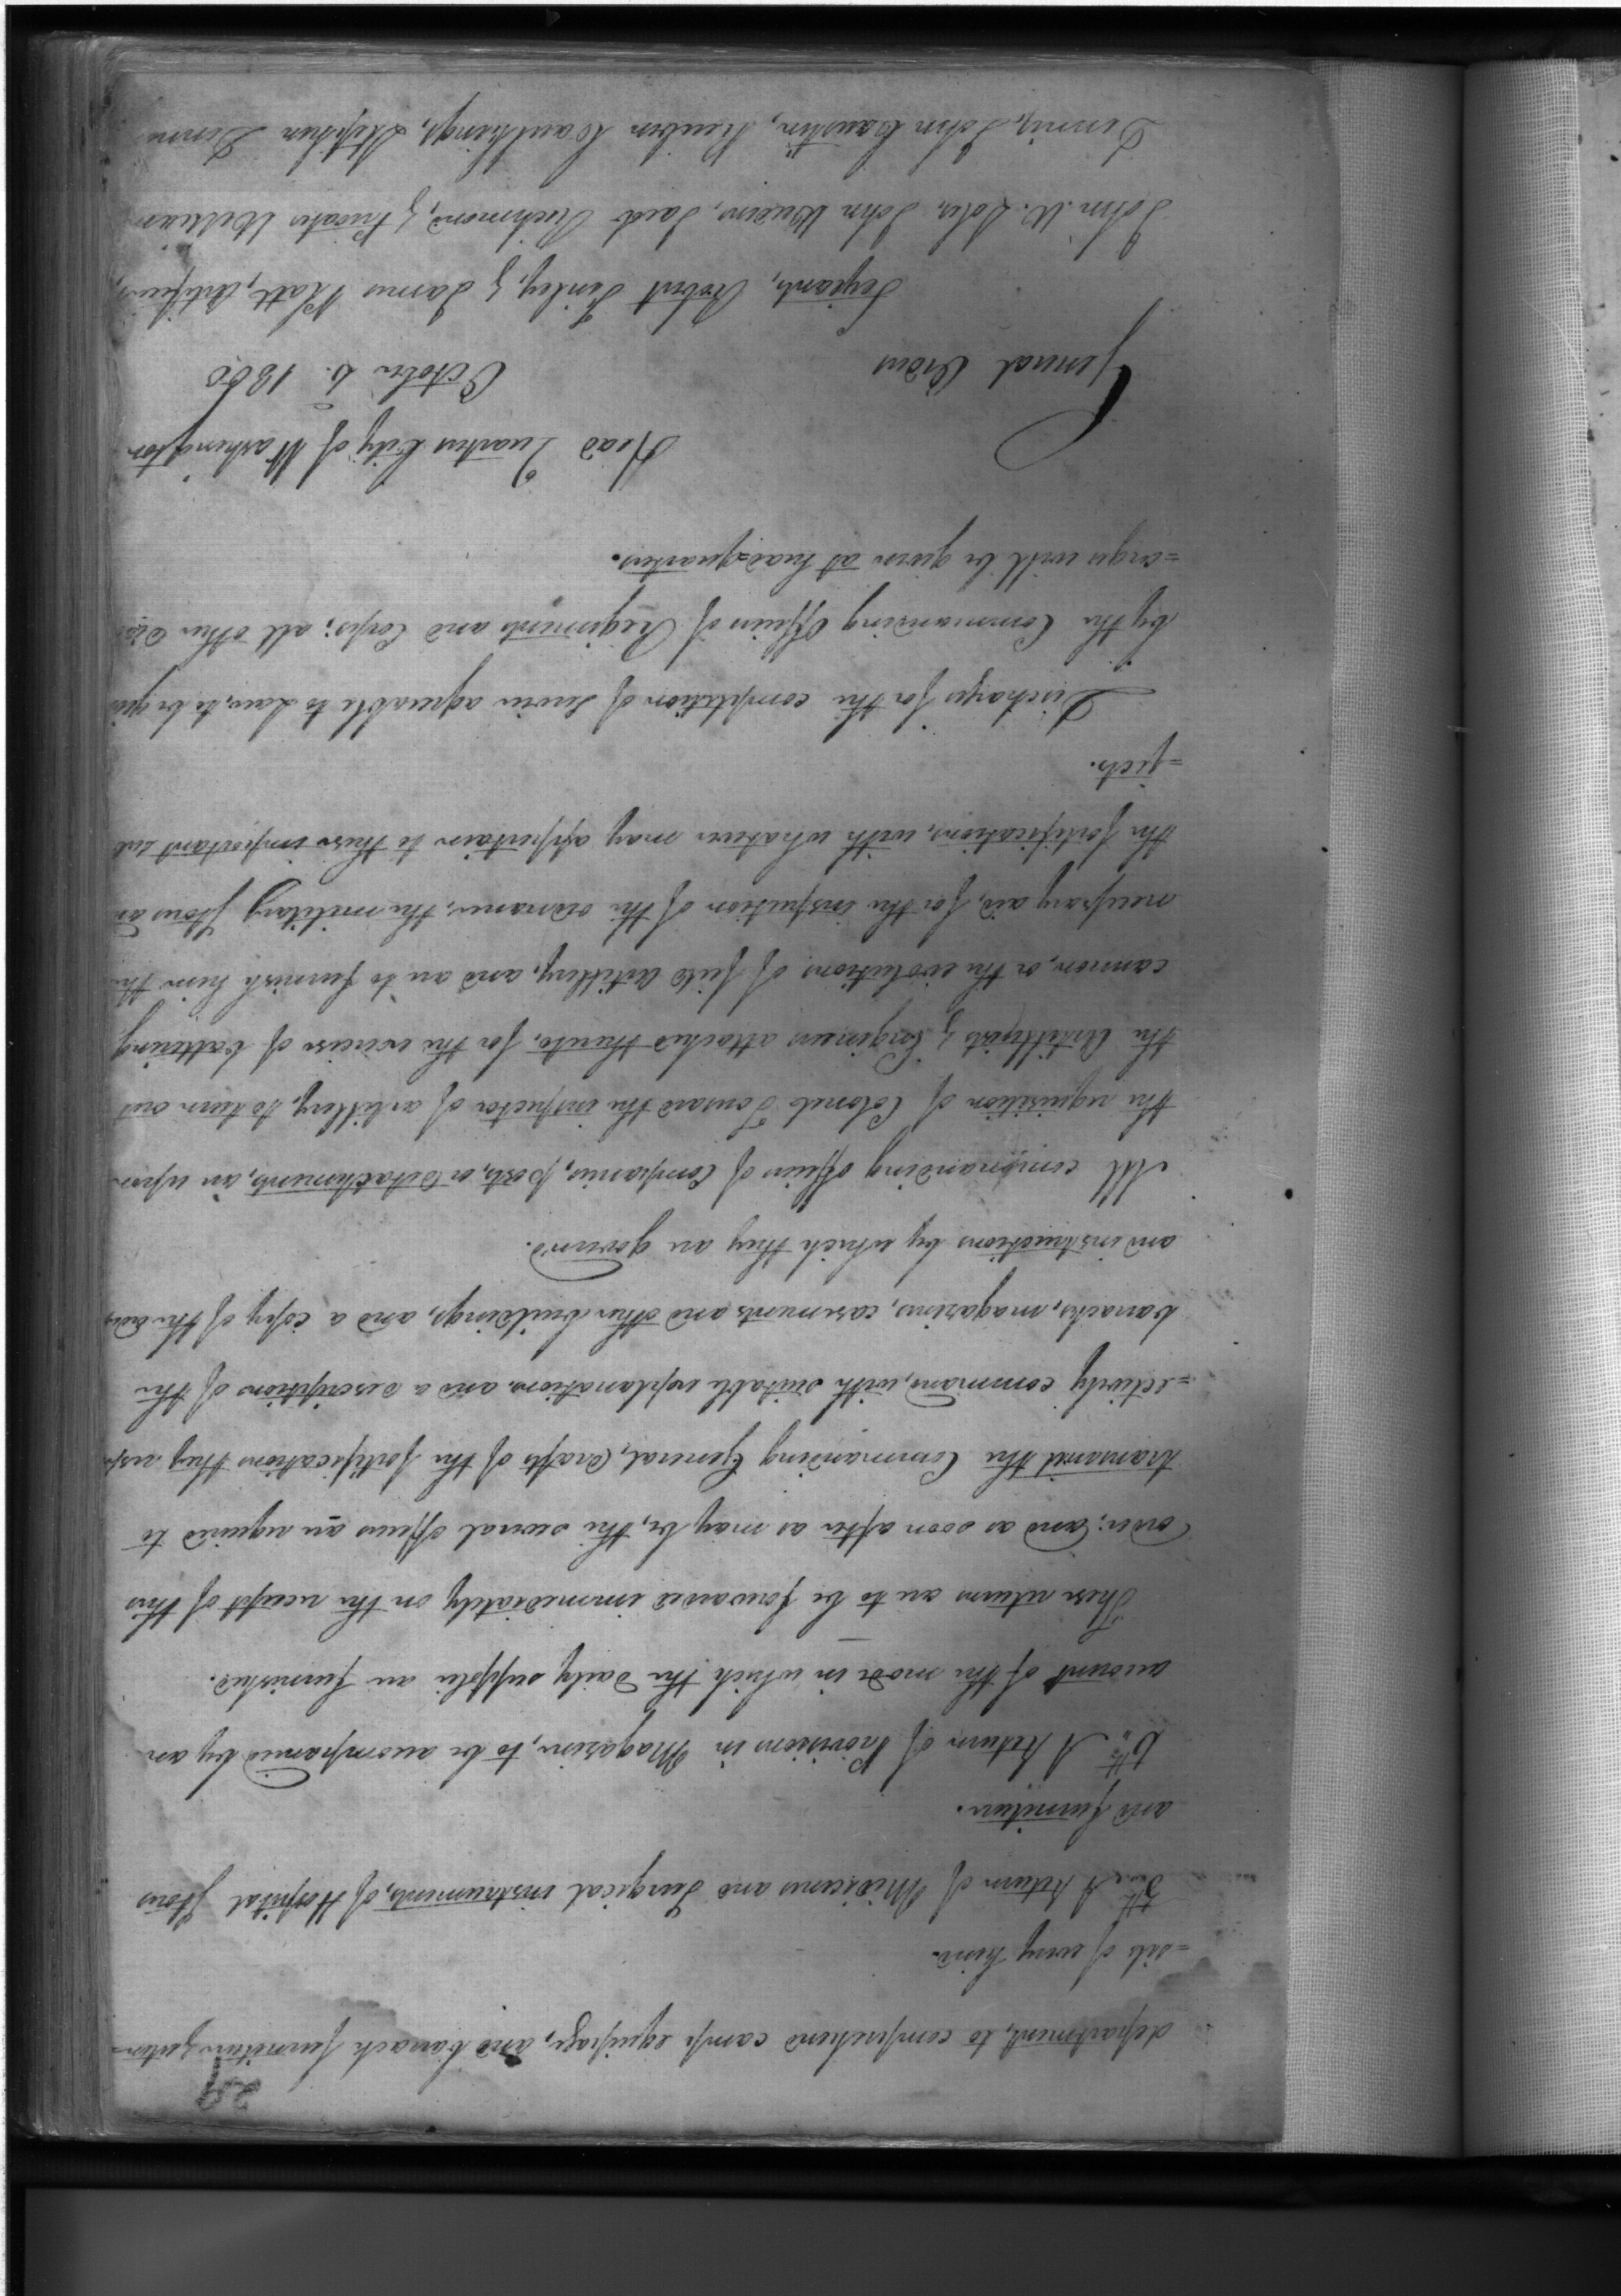 29
department, to comprehend camp equipage, and barrack furniture, &
=sils of every kind.
5th A Return of Medicines and Surgical instruments, of Hospital Stores
and furniture.
6th A Return of Provisions in Magazine, to be accompanied by an
account of the mode in which the daily supplies are furnished.
These returns are to be forwarded immediately on the receipt of this
order; and as soon after as may be, the several officers are required to
transmit the Commanding General, drafts of the fortifications they resp
=ectively command, with suitable explanations and a description of the
barracks, magazines, casements and other buildings, and a copy of the orders
and instructions by which they are governd.
All commanding officers of Companies, posts, or detachments, are upon
the requisition of Colonel Tousard the inspector of artillery, to turn out
the Artillerists & Engineers attached thereto, for the exercise of battering
cannon, or the evolutions of field artillery, and are to furnish him the
necessary aid, for the inspection of the ordnance, the military stores and
the fortifications, with whatever may appertain to these important sub
=jects.
Discharges for the completion of service agreeable to Law, to be given
by the Commanding Officers of Regiments and Corps; all other Disch
=arges will be given at head=quarters.
Head Quarters City of Washington
General Orders October 6. 1800
Serjeants, Robert Finley, & James Platt, Artificers,
John W. John Richmond, & Privates William
Dennis, John Reuben Stephen